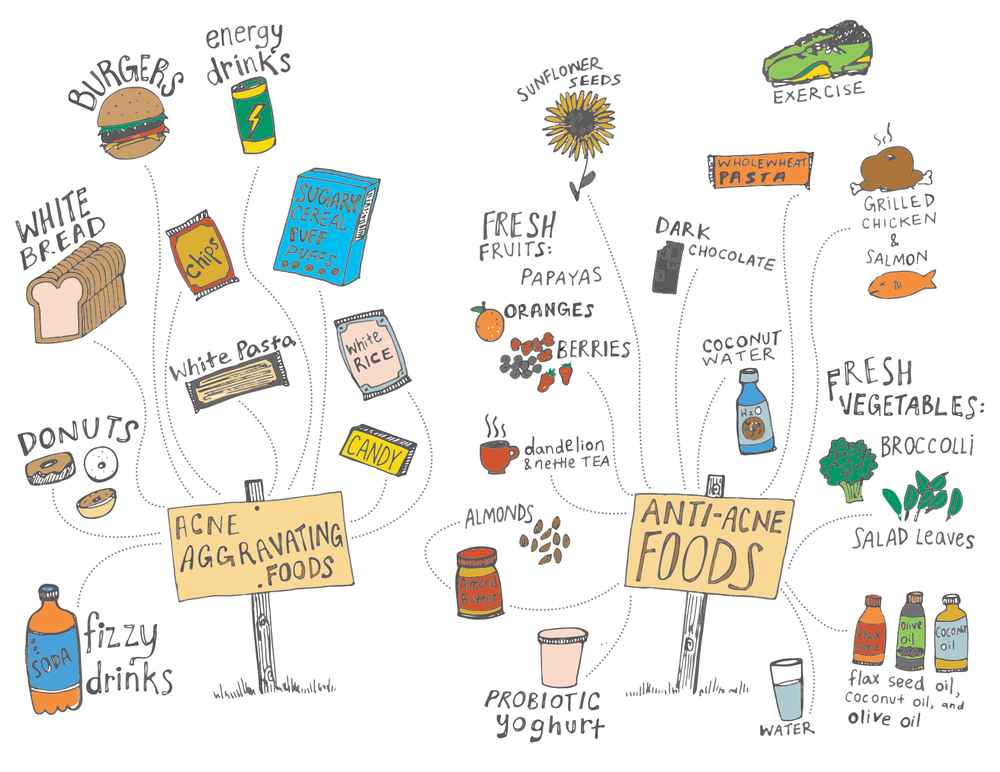 BURGERS
energy
drinks
WHITE
BREAD
Chips
SUGARY
CEREAL
PUFF
PUFFS
White Pasta
White
RICE
DONUTS
CANDY
ACNE
AGGRAVATING
FOODS
SODA
fizzy
drinks
SUNFLOWER
SEEDS
EXERCISE
WHOLEWHEAT
PASTA
GRILLED
CHICKEN
&
SALMON
FRESH
FRUITS:
PAPAYAS
ORANGES
BERRIES
DARK
CHOCOLATE
COCONUT
WATER
H2O
FRESH
VEGETABLES:
BROCCOLI
SALAD Leaves
dandelion
& nettle TEA
ALMONDS
Almond
Butter
ANTI-ACNE
FOODS
PROBIOTIC
yoghurt
WATER
flax
seed
Olive
oil
Coconut
oil
flax seed oil,
coconut oil, and
olive oil